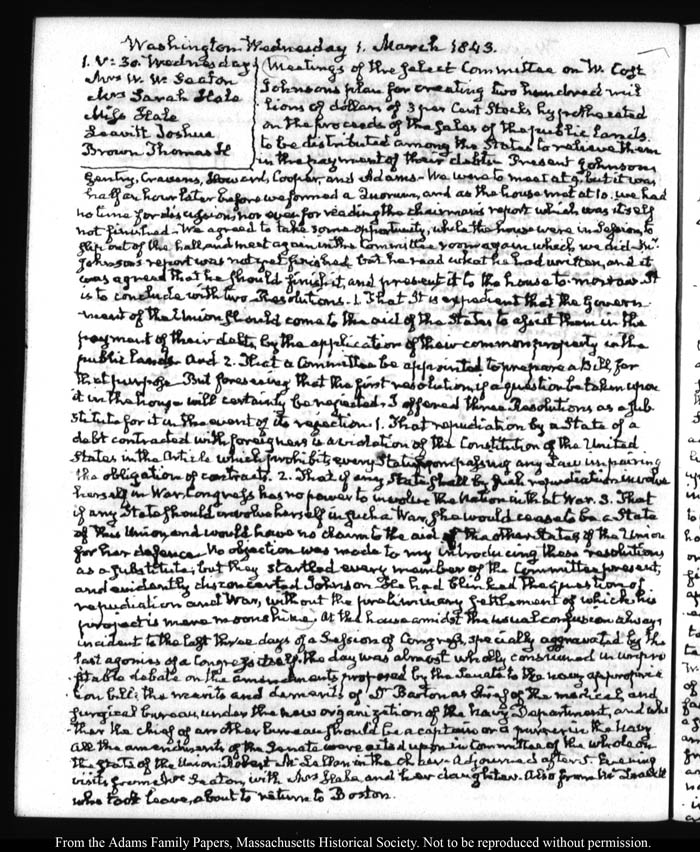 Washington Wednesday 1. March 1843.
1. V:30. Wednesday
Mrs W. W. Seaton
Mrs Sarah Hale
Miss Hale
Leavitt Joshua
Brown Thomas
Meetings of the Select Committee on W. Cost
Johnson's plan for creating two hundred mil-
lions of dollars of 3 per Cent Stocks hypothecated
on the proceeds of the Sales of the public Lands
to be distributed among the States to relieve them
in the payment of their debts. Present Johnson,
Gentry, Cravens, Howard, Cooper, and Adams. We were to meet at 9, but it was
half an hour later before we formed a Quorum, and as the house met at 10. we had
no time for discussion, nor even for reading the chairman's report which was itself
not finished. We agreed to take some opportunity, while the house were in Session, to
slip out of the hall, and meet again in the Committee room again which we did. Mr
Johnson's report was not yet finished, but he read what he had written, and it
was agreed that he should finish it, and present it to the house to-morrow. It
is to conclude with two Resolutions. 1. That It is expedient that the Govern-
ment of the Union should come to the aid of the States to assist them in the
payment of their debts, by the application of their common property in the
public lands. And 2. That a Committee be appointed to prepare a Bill for
that purpose. But foreseeing that the first resolution, if a question be taken upon
it in the house will certainly be rejected, I offered three Resolutions as a sub-
stitute for it in the event of its rejection. 1. That repudiation by a State of a
debt contracted with foreigners is a violation of the Constitution of the United
States in the Article which prohibits every State from passing any Law impairing
the obligation of contracts. 2. That if any State shall by such repudiation involve
herself in War, Congress has no power to involve the Nation in that War. 3. That
if any State should involve herself in such a War, she would cease to be a State
of this Union, and would have no claim to the aid of the other States of the Union
for her defence. No objection was made to my introducing these resolutions
as a substitute; but they startled every member of the Committee present,
and evidently disconcerted Johnson. He had blinked the question of
repudiation and War, without the preliminary settlement of which his
project is mere moonshine. At the house amidst the usual confusion always
incident to the last three days of a Session of Congress, specially aggravated by the
last agonies of a Congress itself, the day was almost wholly consumed in unpro-
fitable debate on the amendments proposed by the Senate to the navy appropria-
tion bill; the merits and demerits of Dr Barton as chief of the medical, and
surgical bureau, under the new organization of the Navy Department, and whe-
ther the chief of another bureau should be a captain or a purser in the Navy
All the amendments of the Senate were acted upon in Committee of the whole on
the State of the Union: Robert McLellan in the chair. Adjourned after 5. Evening
visits from Mrs Seaton, with Mrs Hale and her daughter. Also from Mr Leavitt
who took leave, about to return to Boston.
From the Adams Family Papers, Massachusetts Historical Society. Not to be reproduced without permission.